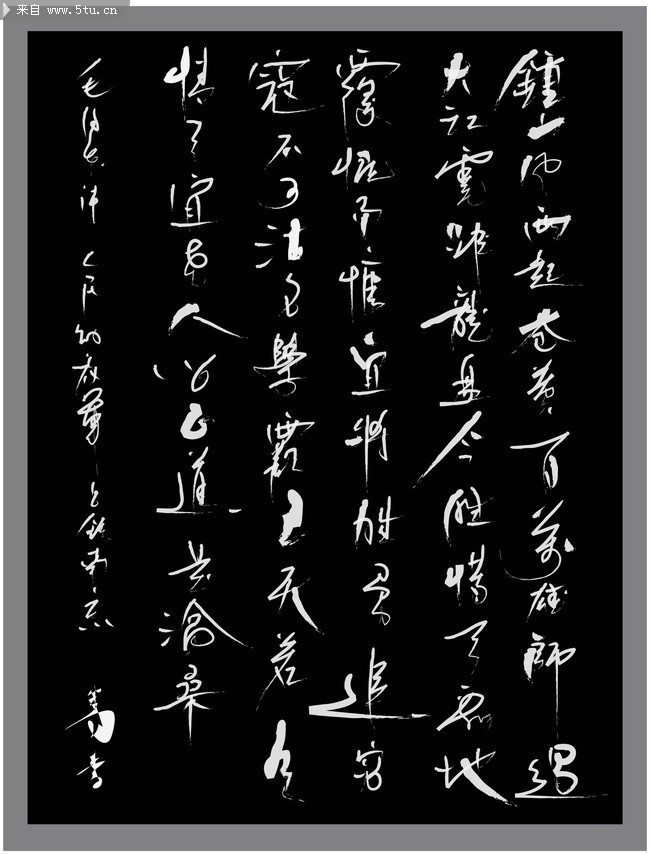 来自 www.5tu.cn
鍾山风雨起苍黄百万雄師过
大江虎踞龍盘今胜惜天翻地
覆慨而慷宜将剩勇追穷
寇不可沽名學霸王天若有
情天宜老人间正道是滄桑
毛泽东诗 人民解放军占领南京
书